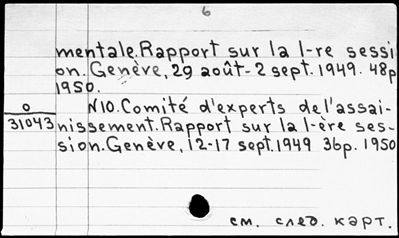 6
mentale.Rapport sur la I-re sessi
on. Genève, 29 août-2 sept. 1949. 48p
1950.
O
31043
N10. Comité d'experts de l'assai-
nissement. Rapport sur la I-ère ses-
sion. Genève, 12-17 sept. 1949 36p. 1950
см. след. карт.